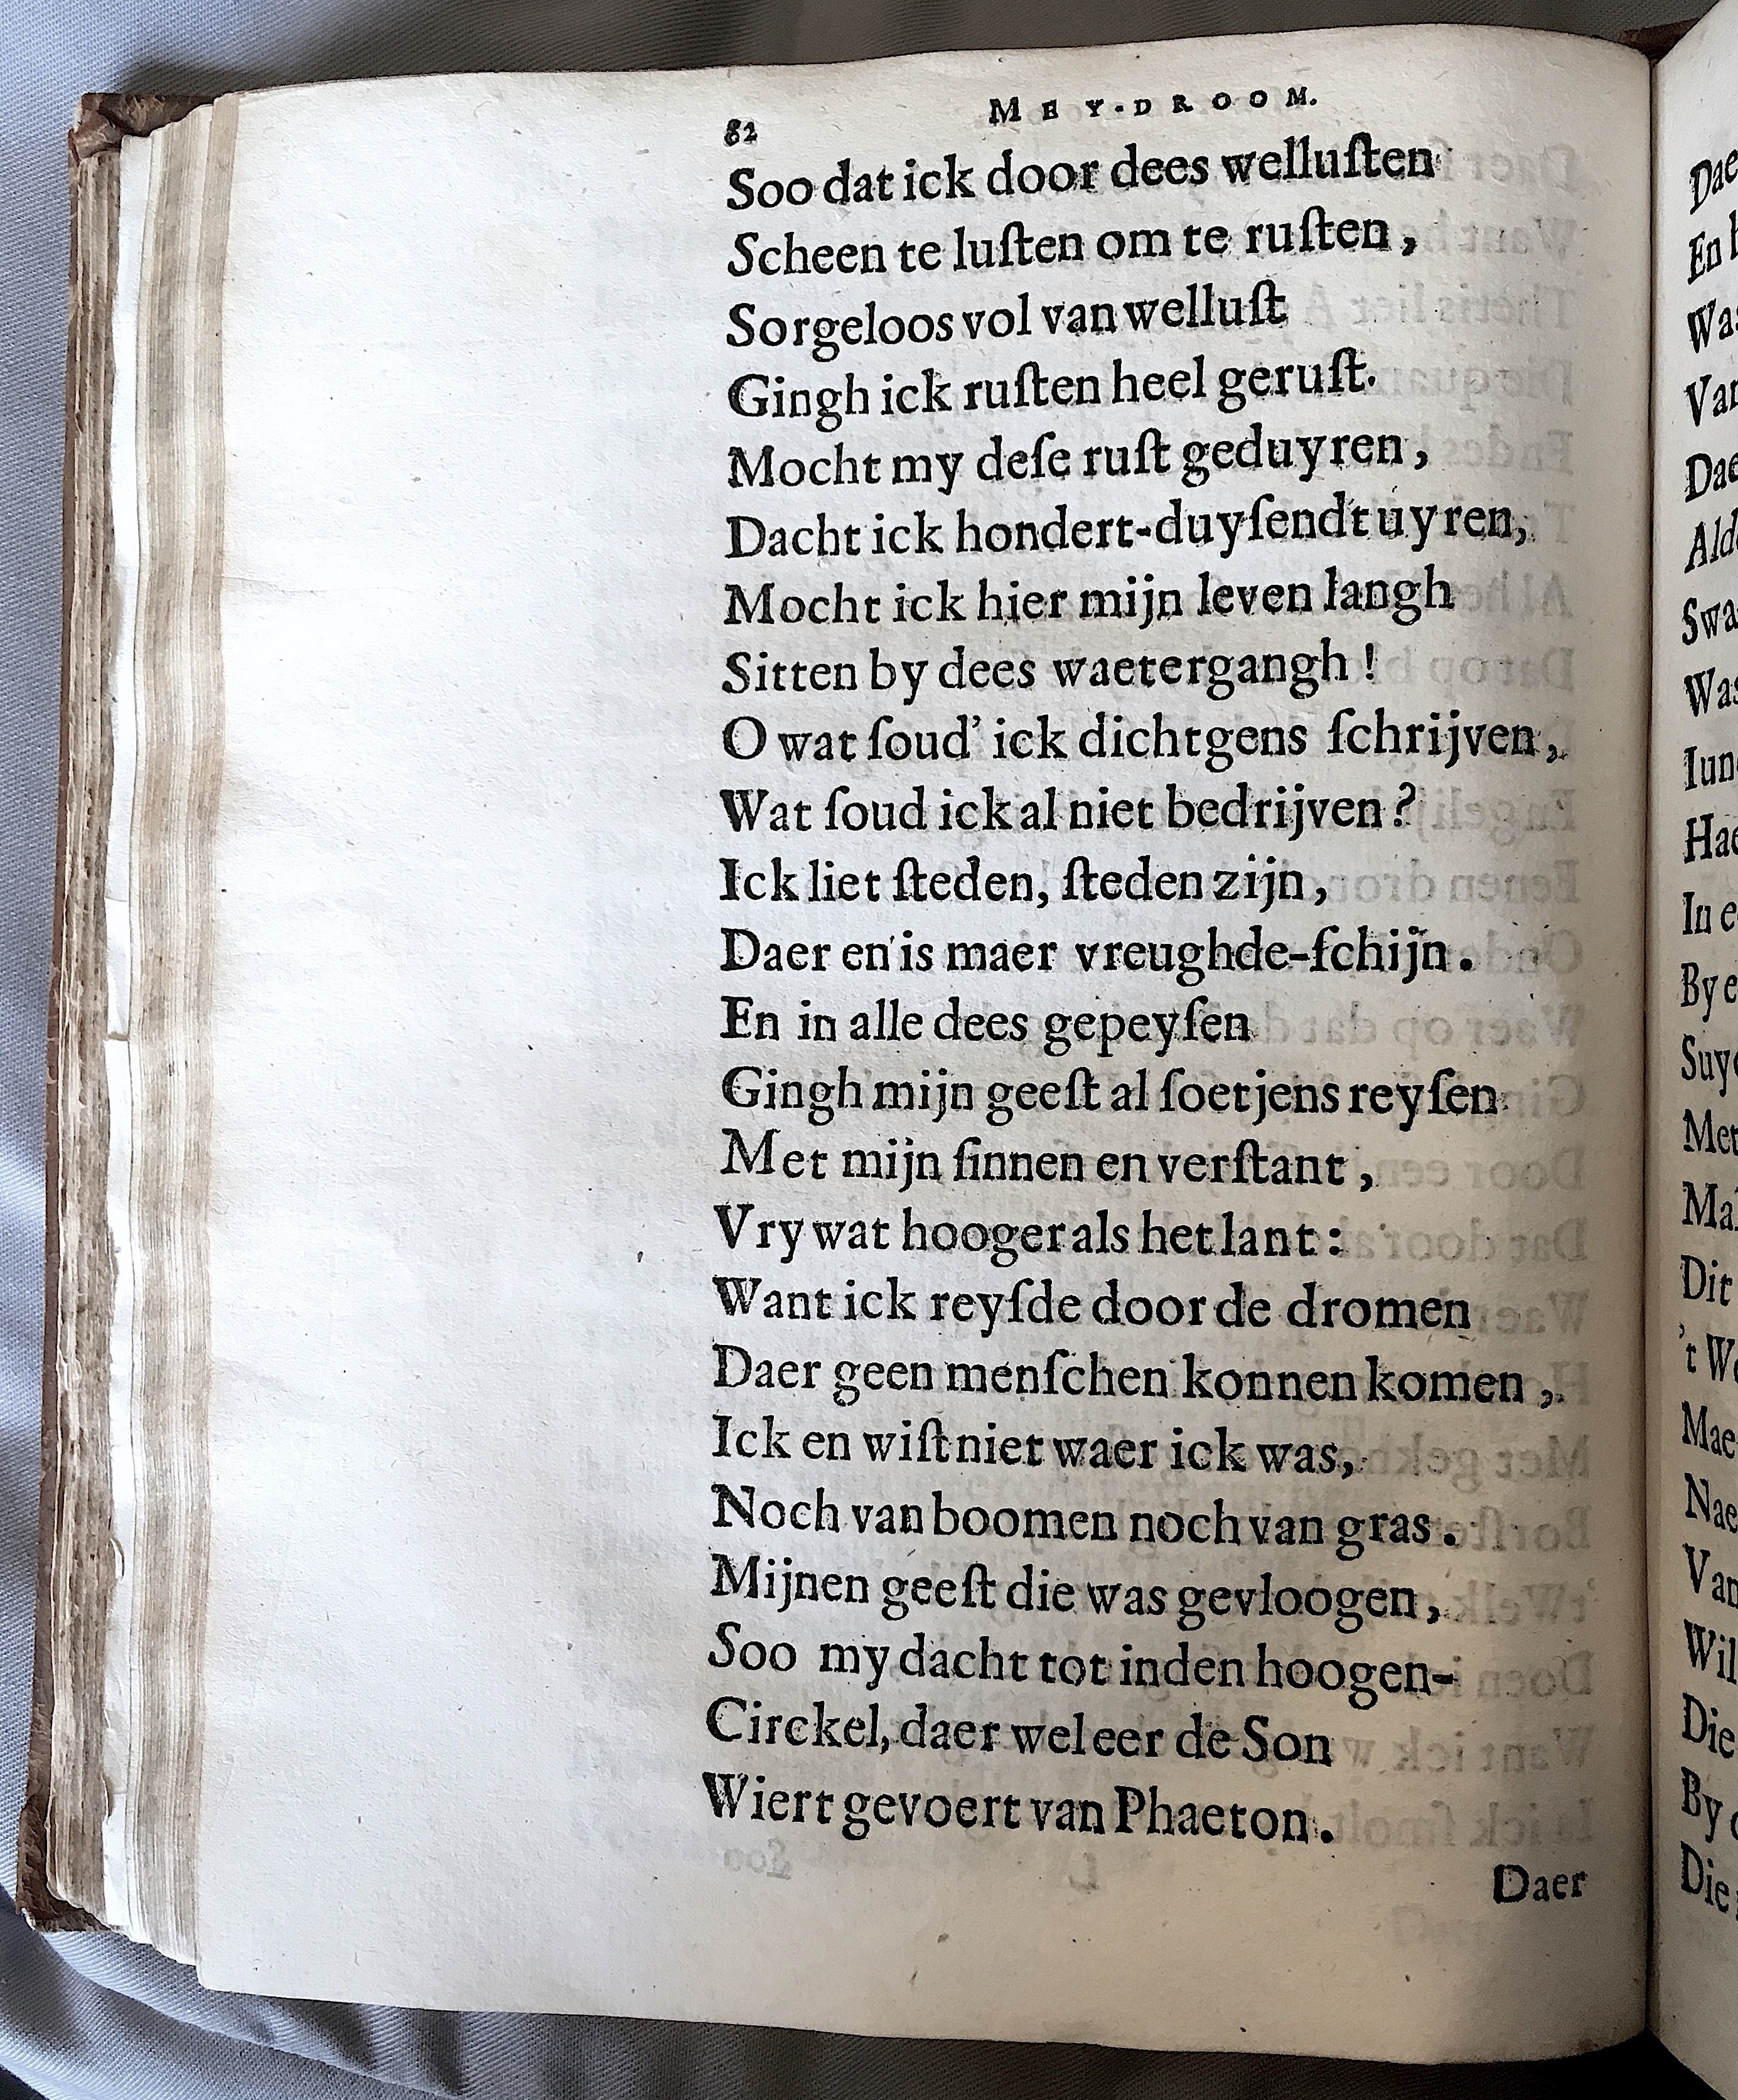 82 MEY-DROOM.
Soo dat ick door dees welluſten
Scheen te luſten om te ruſten,
Sorgeloos vol van welluſt
Gingh ick ruſten heel geruſt.
Mocht my deſe ruſt geduyren,
Dacht ick hondert-duyſendt uyren,
Mocht ick hier mijn leven langh
Sitten by dees waetergangh!
O wat ſoud' ick dichtgens ſchrijven,
Wat ſoud ick al niet bedrijven?
Ick liet ſteden, ſteden zijn,
Daer en is maer vreughde-ſchijn.
En in alle dees gepeyſen
Gingh mijn geeſt al ſoetjens reyſen
Met mijn ſinnen en verſtant,
Vry wat hooger als het lant:
Want ick reyſde door de dromen
Daer geen menſchen konnen komen,
Ick en wiſt niet waer ick was,
Noch van boomen noch van gras.
Mijnen geeſt die was gevloogen,
Soo my dacht tot in den hoogen-
Circkel, daer wel eer de Son
Wiert gevoert van Phaeton.
Daer